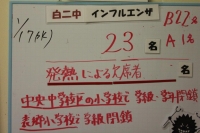 白二中 インフルエンザ
1/17(水)
23名
B22名
A1名
発熱による欠席者 名
中央中学校区の小学校で 学級・学年閉鎖
表郷小学校で学級閉鎖